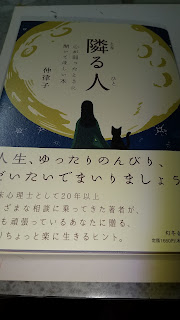 隣る人
心が弱ったときに
開いてほしい本
仲律子
人生、ゆったりのんびり、
だいたいでまいりましょう
心理士として20年以上、
ざまな相談に乗ってきた著者が、
も頑張っているあなたに贈る、
りちょっと楽に生きるヒント。